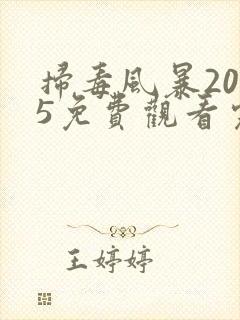 掃毒風暴20
5免費觀看
王婷婷